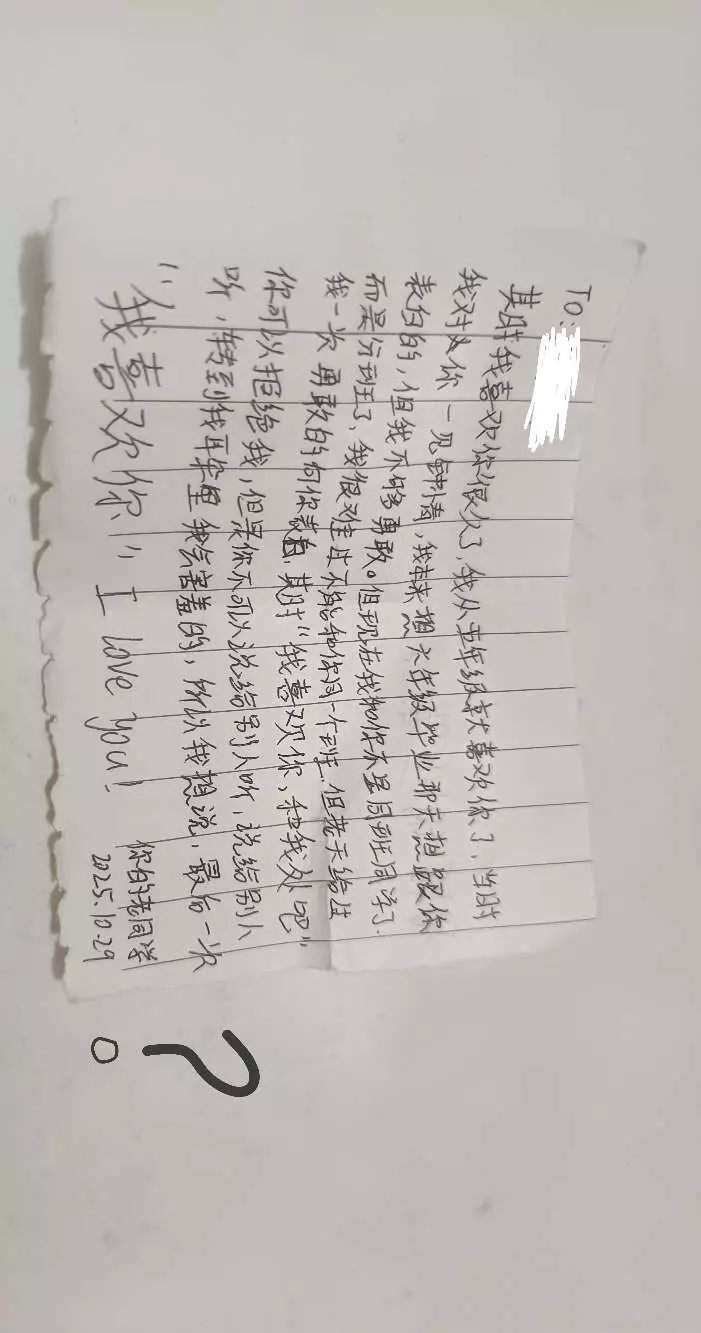 To:
其时我喜欢你很久了,我从五年级就喜欢你了,当时
我对你一见钟情,我本来想六年级毕业那天想跟你
表白的,但我不够勇敢。但现在我和你不是同班同学了.
而是分班了,我很难过不能和你同一个班.但老天给过
我一次勇敢的向你表白,其时"我喜欢你,和我处吧"
你可以拒绝我,但是你不可以说给别人听,说给别人
听,转到我耳朵里我会害羞的,所以我想说,最后一次
"我喜欢你" I love you!
你的老同学
2025.10.29
?